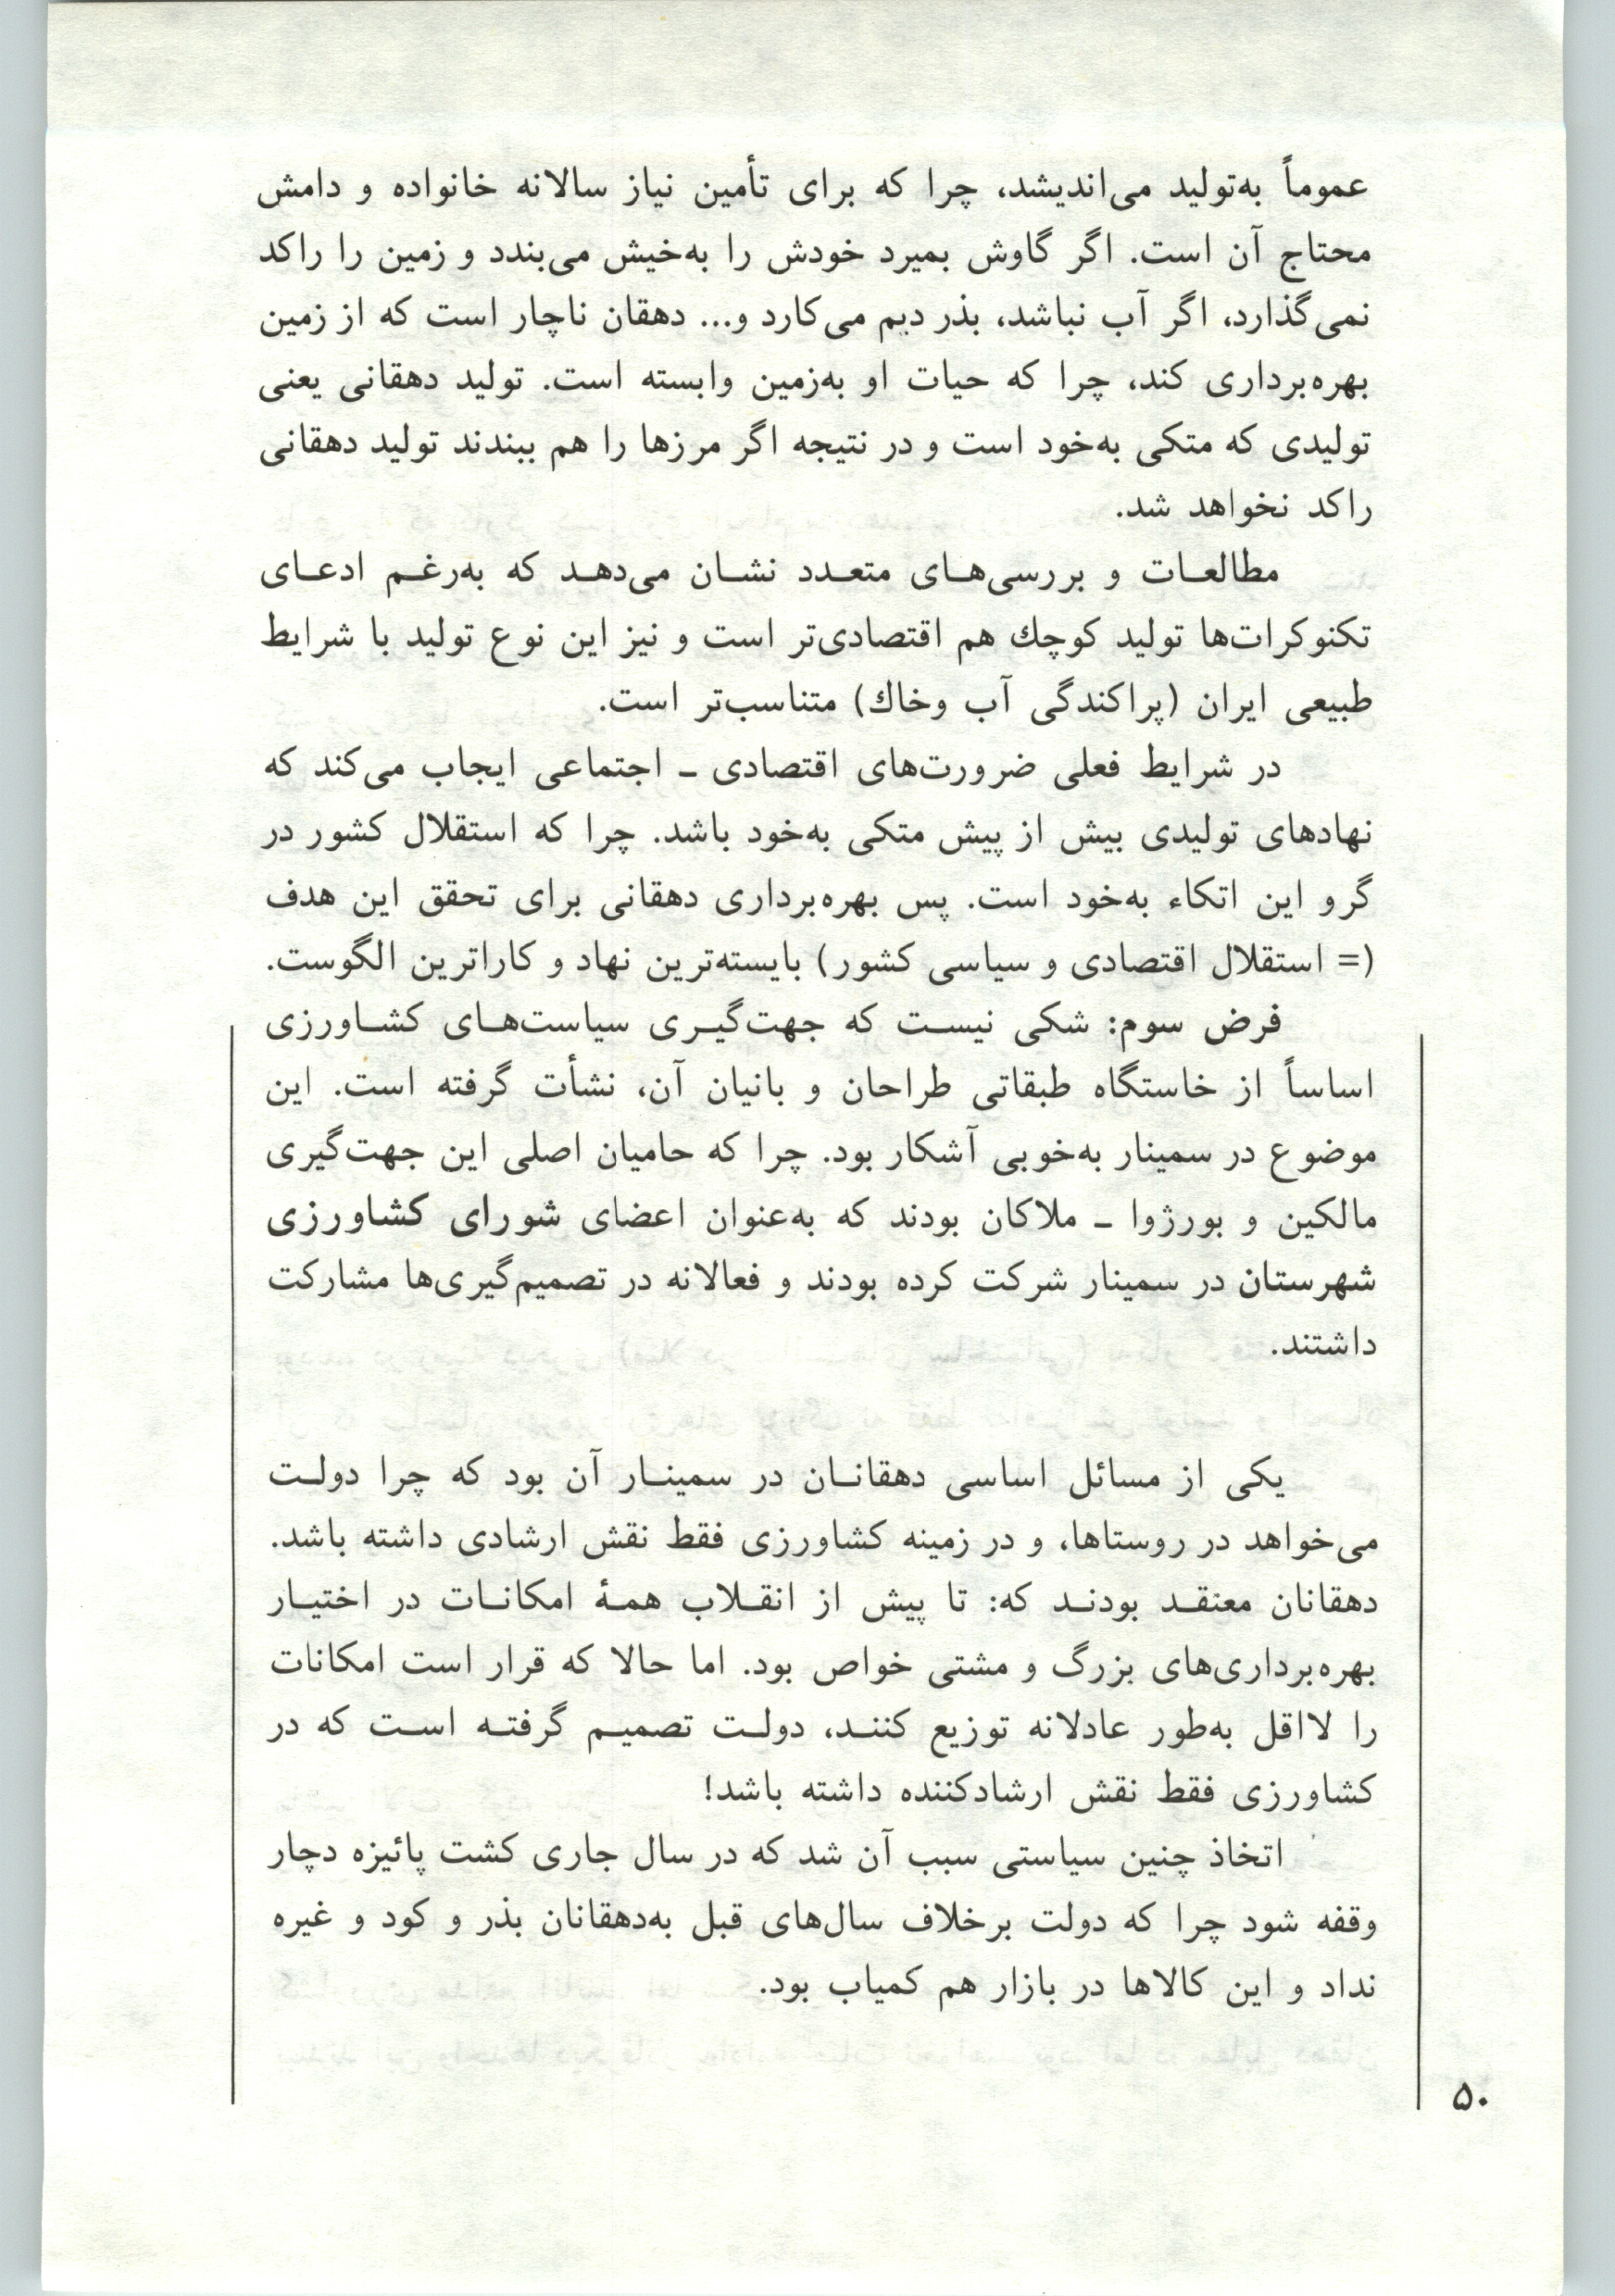 عموماً به‌تولید می‌اندیشد، چرا که برای تأمین نیاز سالانه خانواده و دامش
محتاج آن است. اگر گاوش بمیرد خودش را به‌خیش می‌بندد و زمین را راکد
نمی‌گذارد، اگر آب نباشد، بذر دیم می‌کارد و... دهقان ناچار است که از زمین
بهره‌برداری کند، چرا که حیات او به‌زمین وابسته است. تولید دهقانی یعنی
تولیدی که متکی به‌خود است و در نتیجه اگر مرزها را هم ببندند تولید دهقانی
راکد نخواهد شد.
مطالعـات و بررسی‌هـای متعـدد نشـان می‌دهـد که به‌رغـم ادعـای
تکنوکرات‌ها تولید کوچك هم اقتصادی‌تر است و نیز این نوع تولید با شرایط
طبیعی ایران (پراکندگی آب وخاك) متناسب‌تر است.
در شرایط فعلی ضرورت‌های اقتصادی ـ اجتماعی ایجاب می‌کند که
نهادهای تولیدی بیش از پیش متکی به‌خود باشد. چرا که استقلال کشور در
گرو این اتکاء به‌خود است. پس بهره‌برداری دهقانی برای تحقق این هدف
(= استقلال اقتصادی و سیاسی کشور) بایسته‌ترین نهاد و کاراترین الگوست.
فرض سوم: شکی نیسـت که جهت‌گیـری سیاست‌هـای کشـاورزی
اساساً از خاستگاه طبقاتی طراحان و بانیان آن، نشأت گرفته است. این
موضوع در سمینار به‌خوبی آشکار بود. چرا که حامیان اصلی این جهت‌گیری
مالکین و بورژوا ـ ملاکان بودند که به‌عنوان اعضای شورای کشاورزی
شهرستان در سمینار شرکت کرده بودند و فعالانه در تصمیم‌گیری‌ها مشارکت
داشتند.
یکی از مسائل اساسی دهقانـان در سمینـار آن بود که چرا دولـت
می‌خواهد در روستاها، و در زمینه کشاورزی فقط نقش ارشادی داشته باشد.
دهقانان معتقـد بودنـد که: تا پیش از انقـلاب همـهٔ امکانـات در اختیـار
بهره‌برداری‌های بزرگ و مشتی خواص بود. اما حالا که قرار است امکانات
را لااقل به‌طور عادلانه توزیع کننـد، دولـت تصمیـم گرفتـه اسـت که در
کشاورزی فقط نقش ارشادکننده داشته باشد!
اتخاذ چنین سیاستی سبب آن شد که در سال جاری کشت پائیزه دچار
وقفه شود چرا که دولت برخلاف سال‌های قبل به‌دهقانان بذر و کود و غیره
نداد و این کالاها در بازار هم کمیاب بود.
۵۰